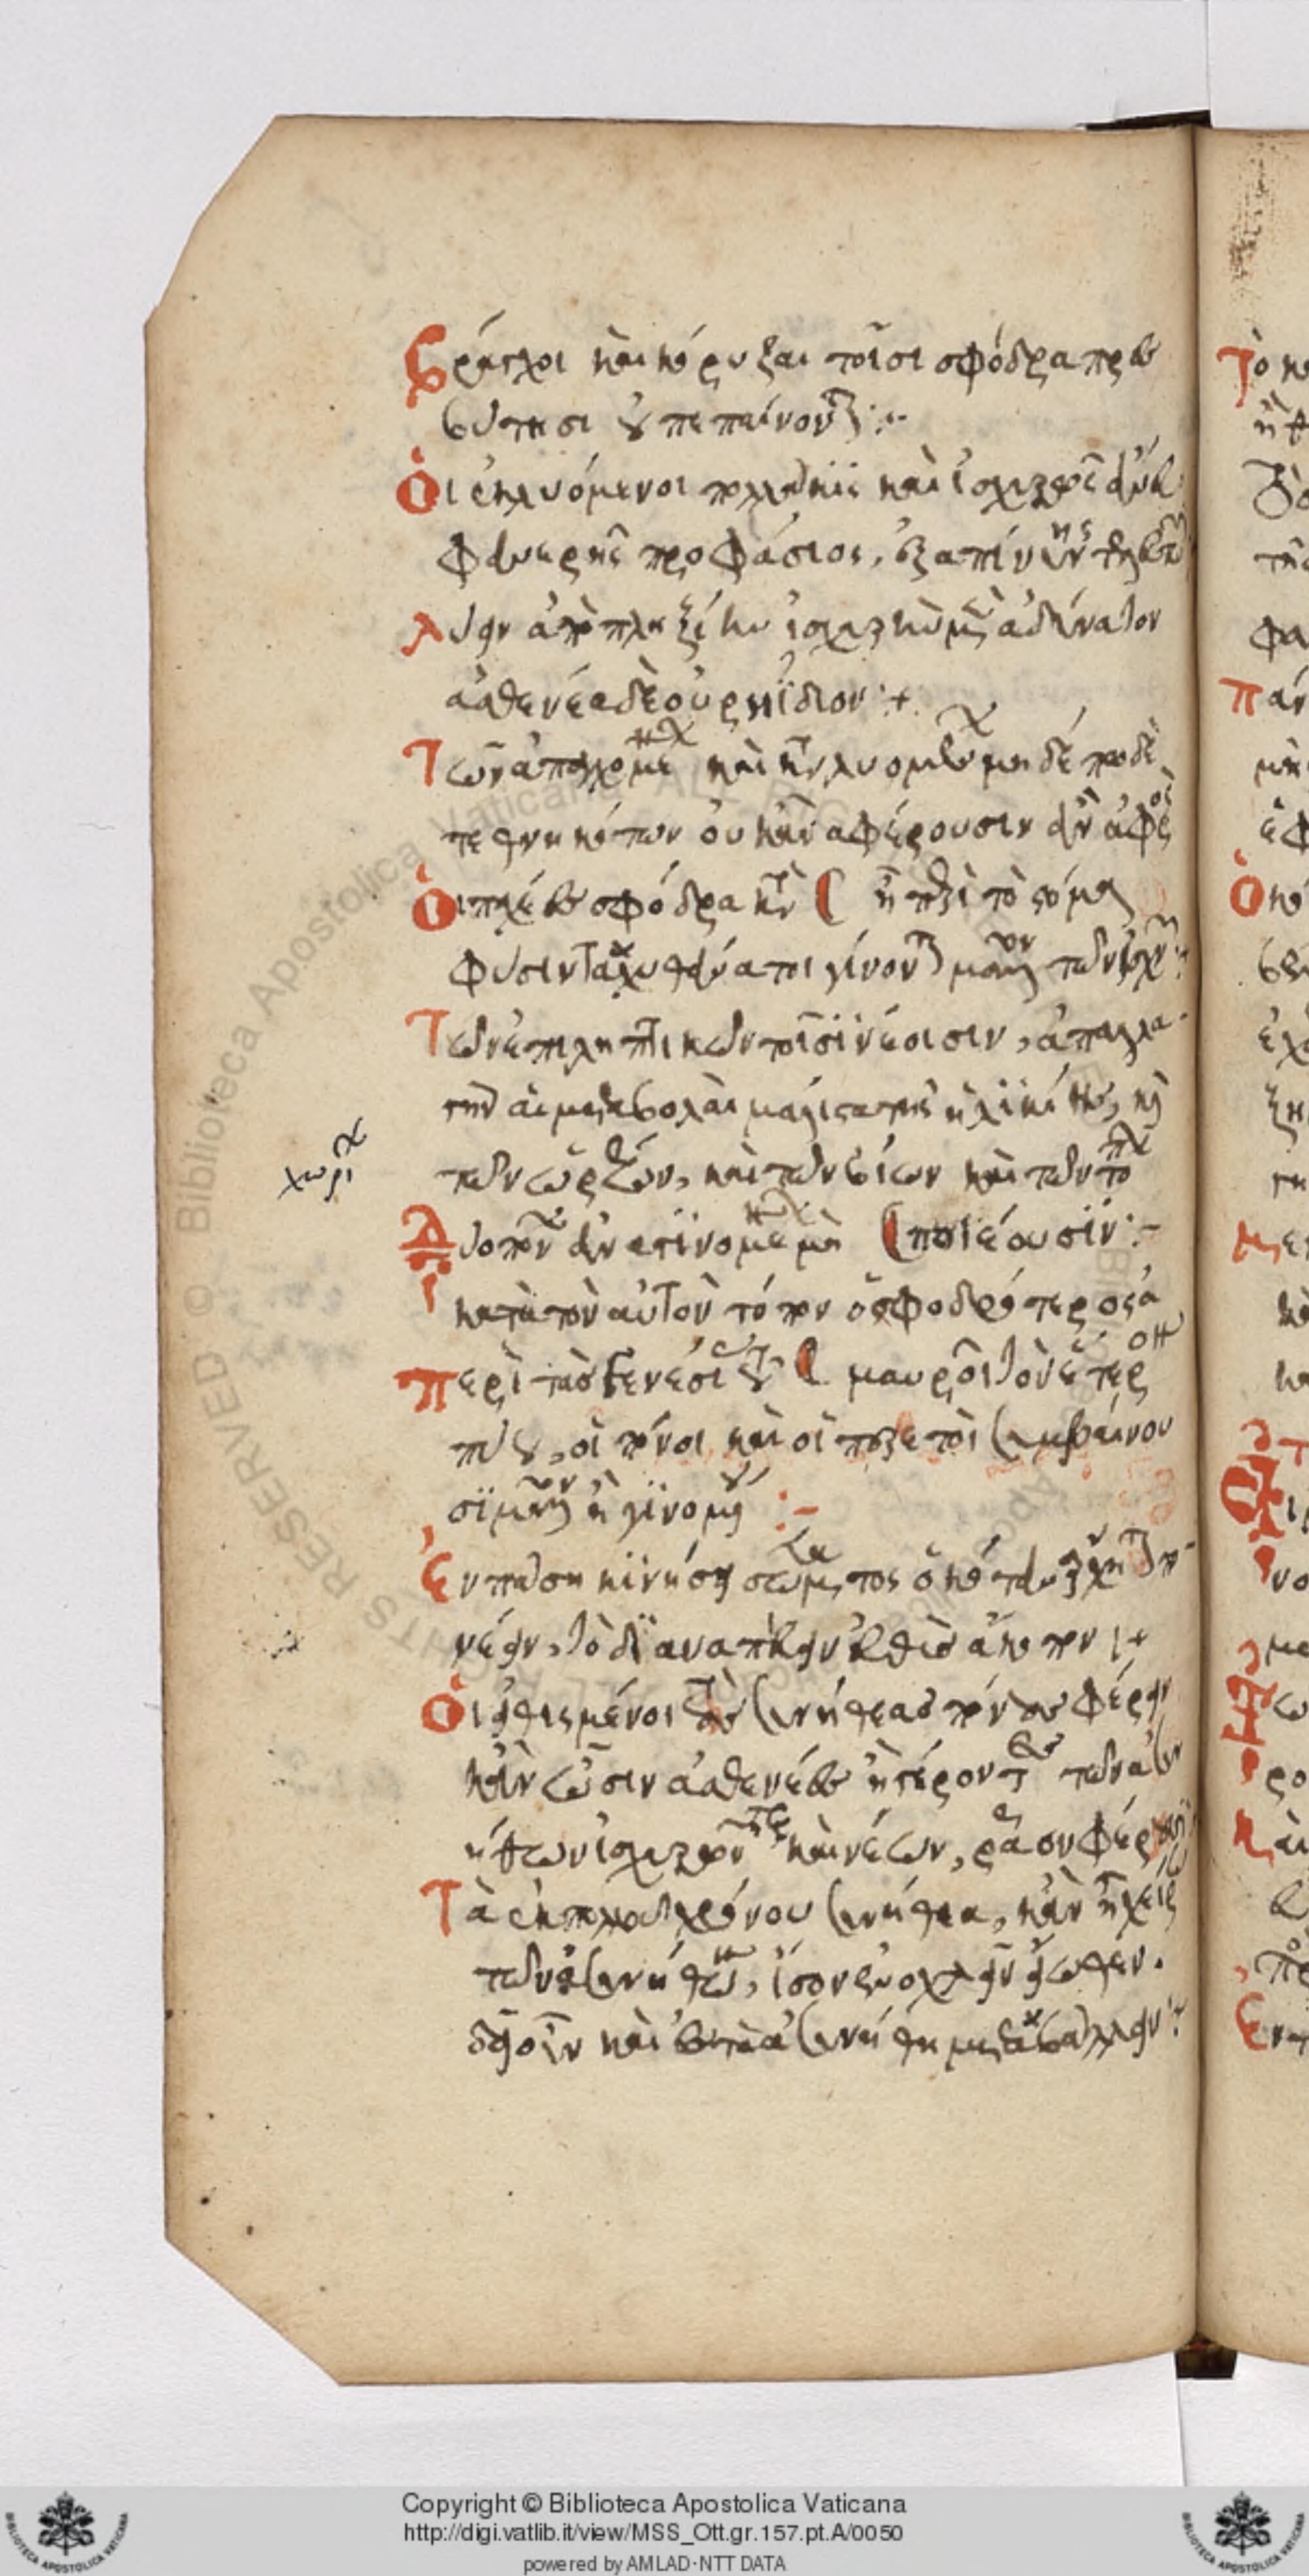 Βράγχοι καὶ κόρυζαι τοῖσι σφόδρα πρεσ
βύτῃσι οὐ πεπαίνονται :-
Οἱ ἐκλυόμενοι πολλάκις καὶ ἰσχυρῶς ἄνευ
φανερῆς προφάσιος, ἐξαπίνης τελευτῶσιν
λύειν ἀποπληξίην ἰσχυρὴν μὲν ἀδύνατον
ἀσθενέα δὲ οὐ ρηΐδιον :+
Τῶν ἀπαγχομένων καὶ καταλυομένων μηδέπω δὲ
τεθνηκότων οὐκ ἀναφέρουσιν ἂν ἀφρὸς
Οἱ παχέες σφόδρα κατὰ ( ᾖ περὶ τὸ στόμα
φύσιν ταχυθάνατοι γίνονται μᾶλλον τῶν ἰσχνῶν :
Τῶν ἐπιληπτικῶν τοῖσι νέοισιν, ἀπαλλα
γὴν αἱ μεταβολαὶ μάλιστα τῆς ἡλικίης, καὶ
τῶν ὡρέων, καὶ τῶν βίων καὶ τῶν τόπων
χωρί
Δύο πόνων ἅμα γινομένων μὴ ( ποιέουσιν :-
κατὰ τὸν αὐτὸν τόπον ὁ σφοδρότερος ἀ
Περὶ τὰς γενέσιας τοῦ ( μαυροῖ τὸν ἕτερον
πύου, οἱ πόνοι καὶ οἱ πυρετοὶ συμβαίνου
σι μᾶλλον ἢ γινομένου :-
Ἐν πάσῃ κινήσει σώματος ὁκόταν ἄρχηται πο
νέειν, τὸ διαναπαύειν εὐθὺς ἄκοπον :+
Οἱ εἰθισμένοι τοὺς συνήθεας πόνους φέρειν
κἂν ὦσιν ἀσθενέες ἢ γέροντες τῶν ἀσυν
ήθων ἰσχυρῶν τε καὶ νέων, ρᾷον φέρουσιν
Τὰ ἐκ πολλοῦ χρόνου συνήθεα, κἂν ᾖ χείρω
τῶν ἀσυνήθων, ἧσσον ἐνοχλεῖν εἴωθεν.
δεῖ οὖν καὶ ἐς τὰ ἀσυνήθη μεταβάλλειν :+
Copyright © Biblioteca Apostolica Vaticana
http://digi.vatlib.it/view/MSS_Ott.gr.157.pt.A/0050
powered by AMLAD-NTT DATA